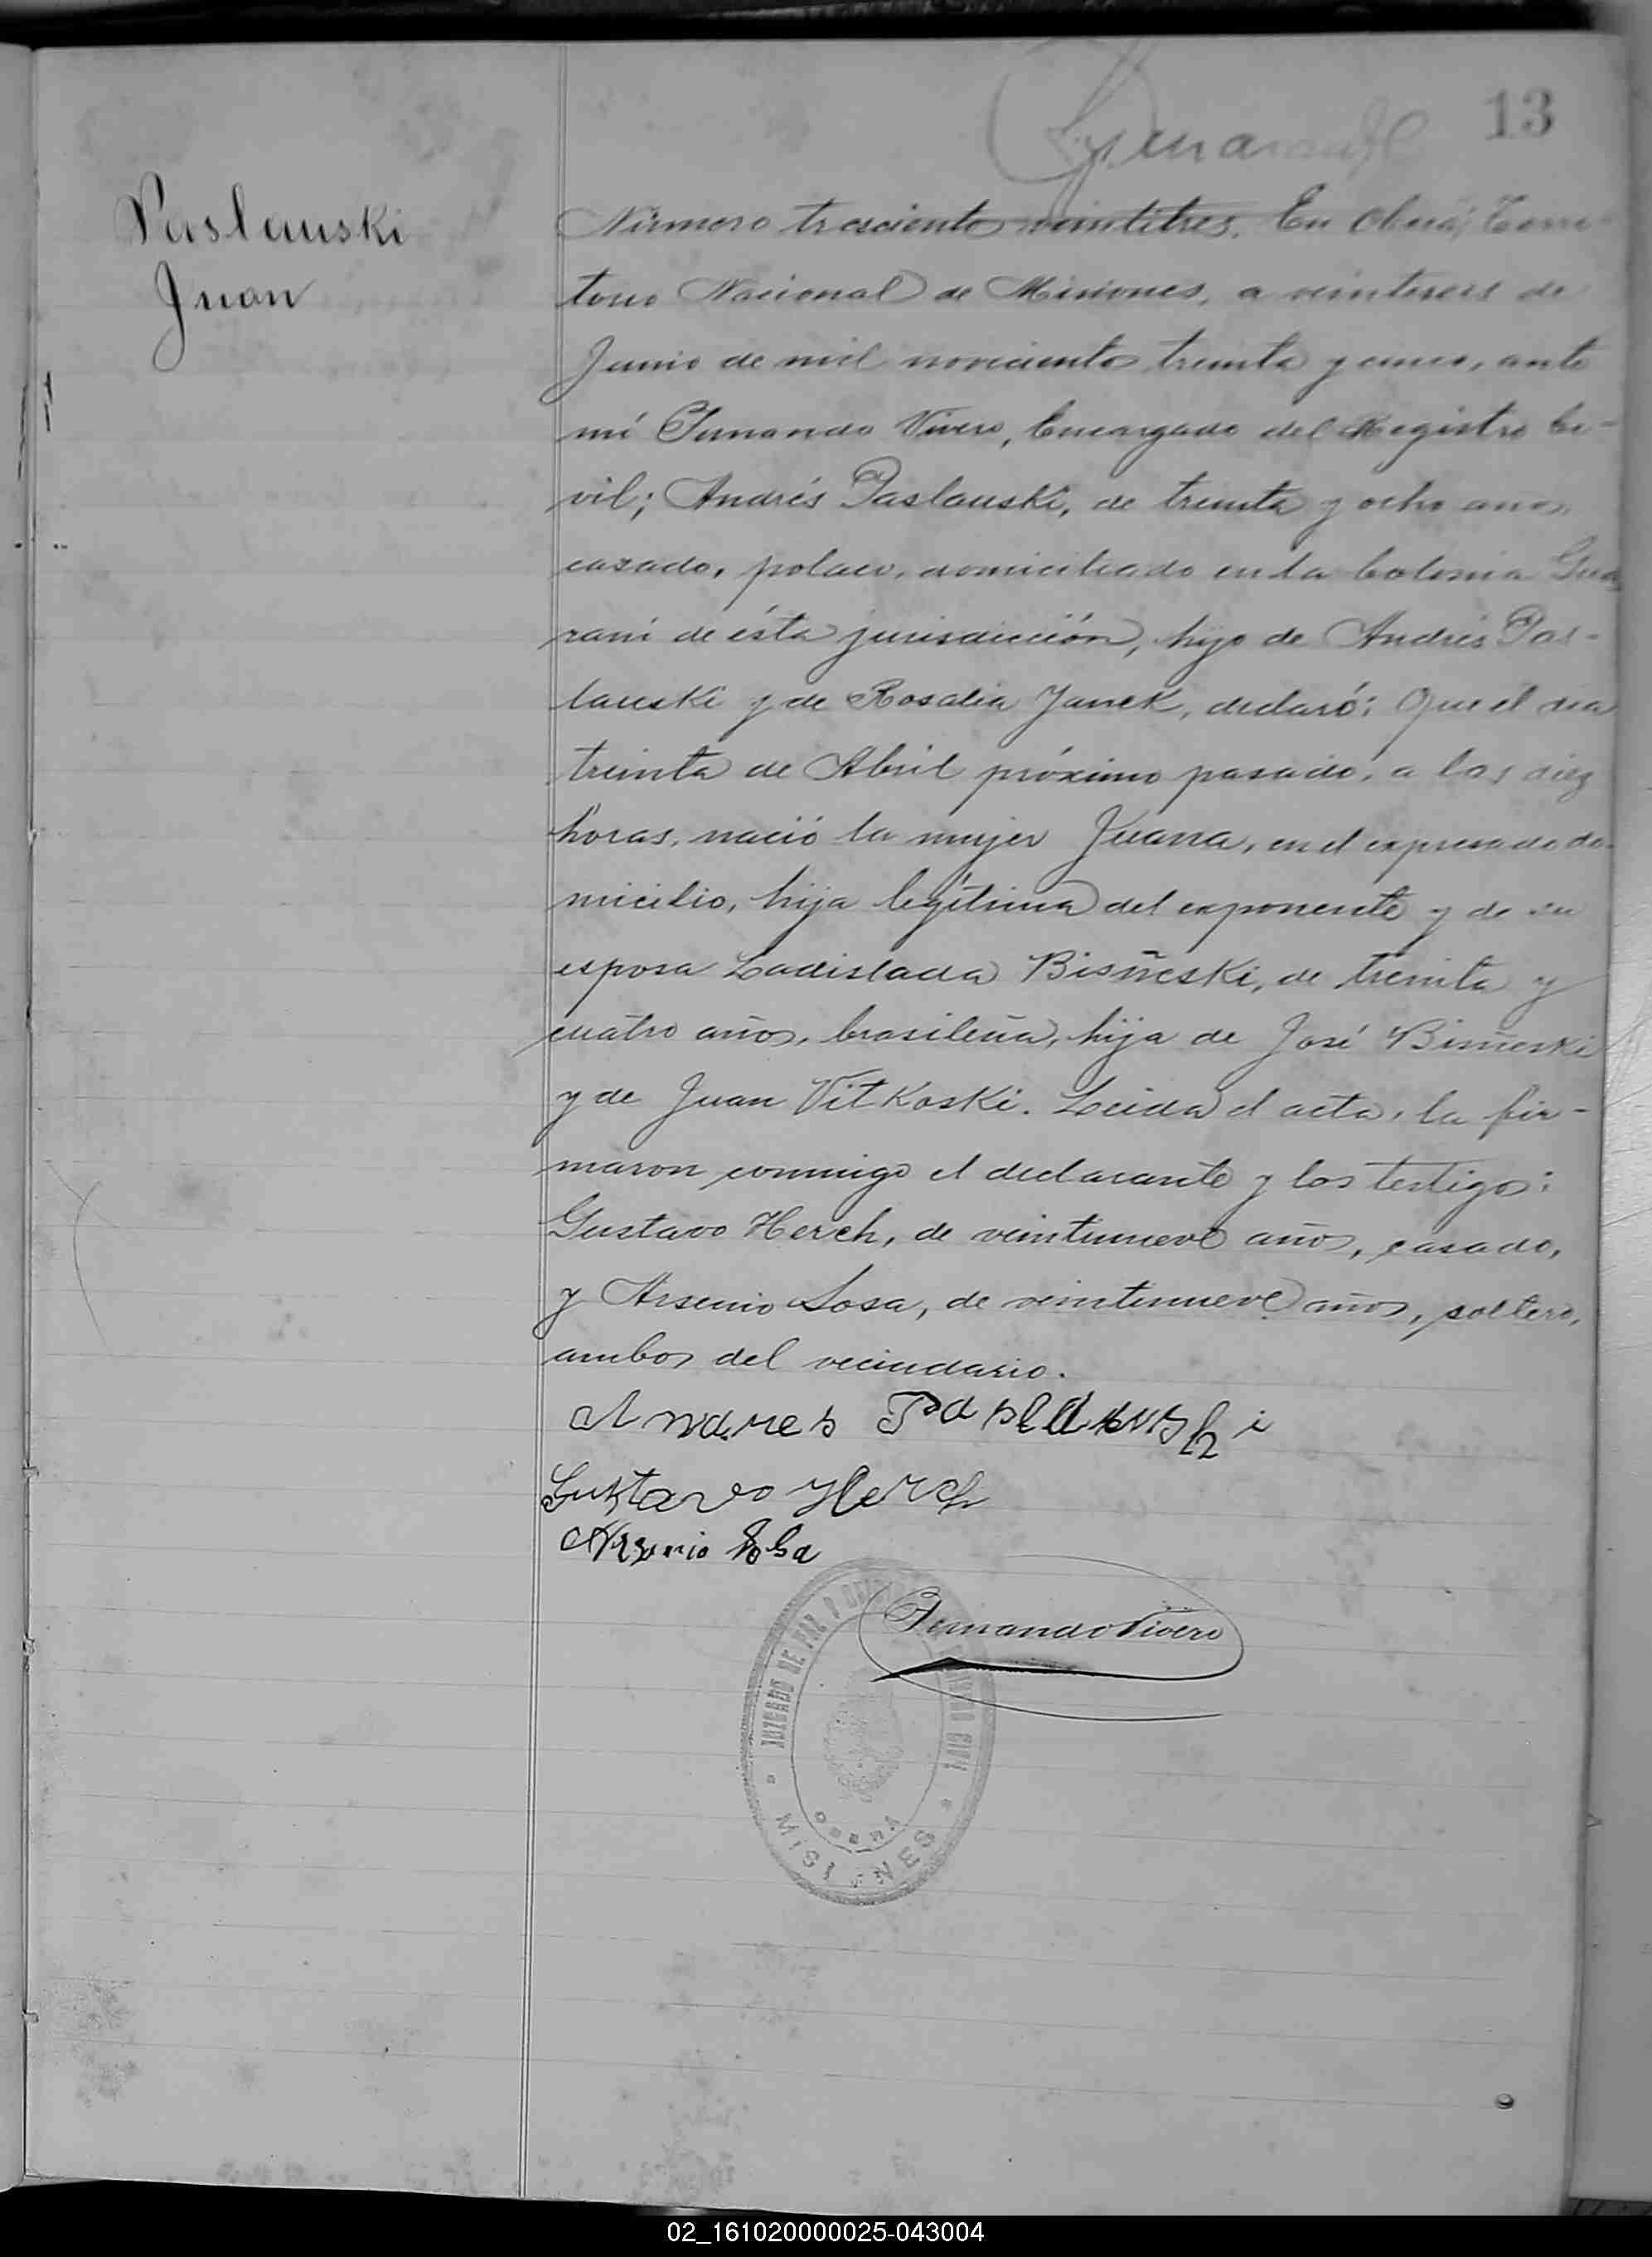 13
Paslauski
Juan
Número trescientos veintitres. En Oberá, Terri-
torio Nacional de Misiones, a veintiseis de
Junio de mil novecientos treinta y cinco, ante
mí Fernando Vivero, Encargado del Registro Ci-
vil; Andrés Paslauski, de treinta y ocho años,
casado, polaco, domiciliado en la Colonia Gua
raní de ésta jurisdicción, hijo de Andrés Pas-
lauski y de Rosalia Janek, declaró: Que el dia
treinta de Abril próximo pasado, a las diez
horas, nació la mujer Juana, en el expresado do-
micilio, hija legítima del exponente y de su
esposa Ladislada Bisñeski, de treinta y
cuatro años, brasileña, hija de José Bisñeski
y de Juan Vitkoski. Leida el acta, la fir-
maron conmigo el declarante y los testigos:
Gustavo Herch, de veintinueve años, casado,
y Arsenio Sosa, de veintinueve años, soltero,
ambos del vecindario.
Andres Paslauski
Gustavo Herch
Arsenio Sosa
Fernando Vivero
JUZGADO DE PAZ CIVIL
OBERÁ
MISIONES
02_161020000025-043004